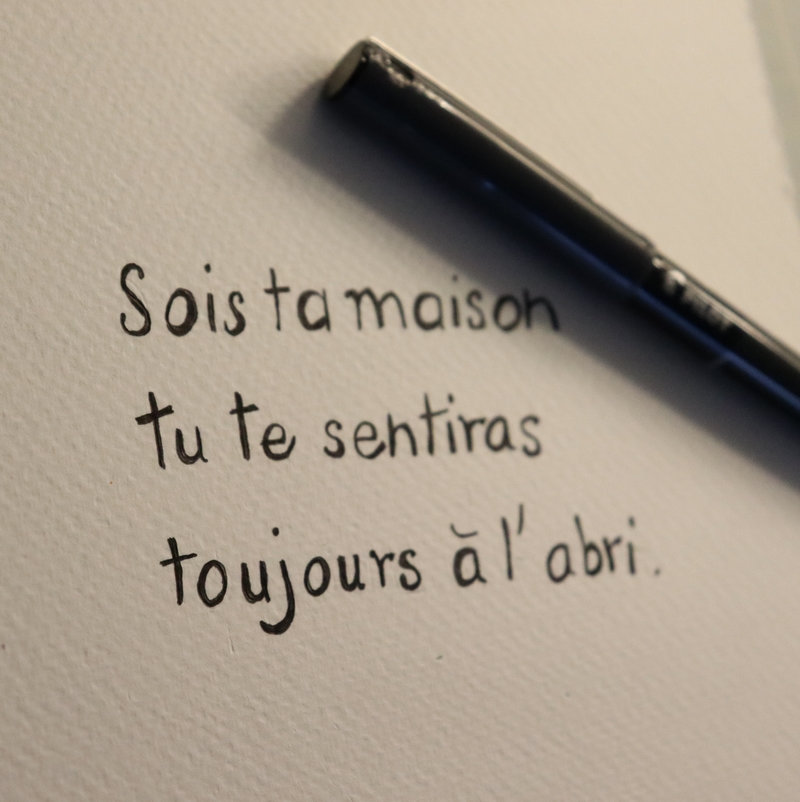 Sois ta maison
tu te sentiras
toujours à l'abri.